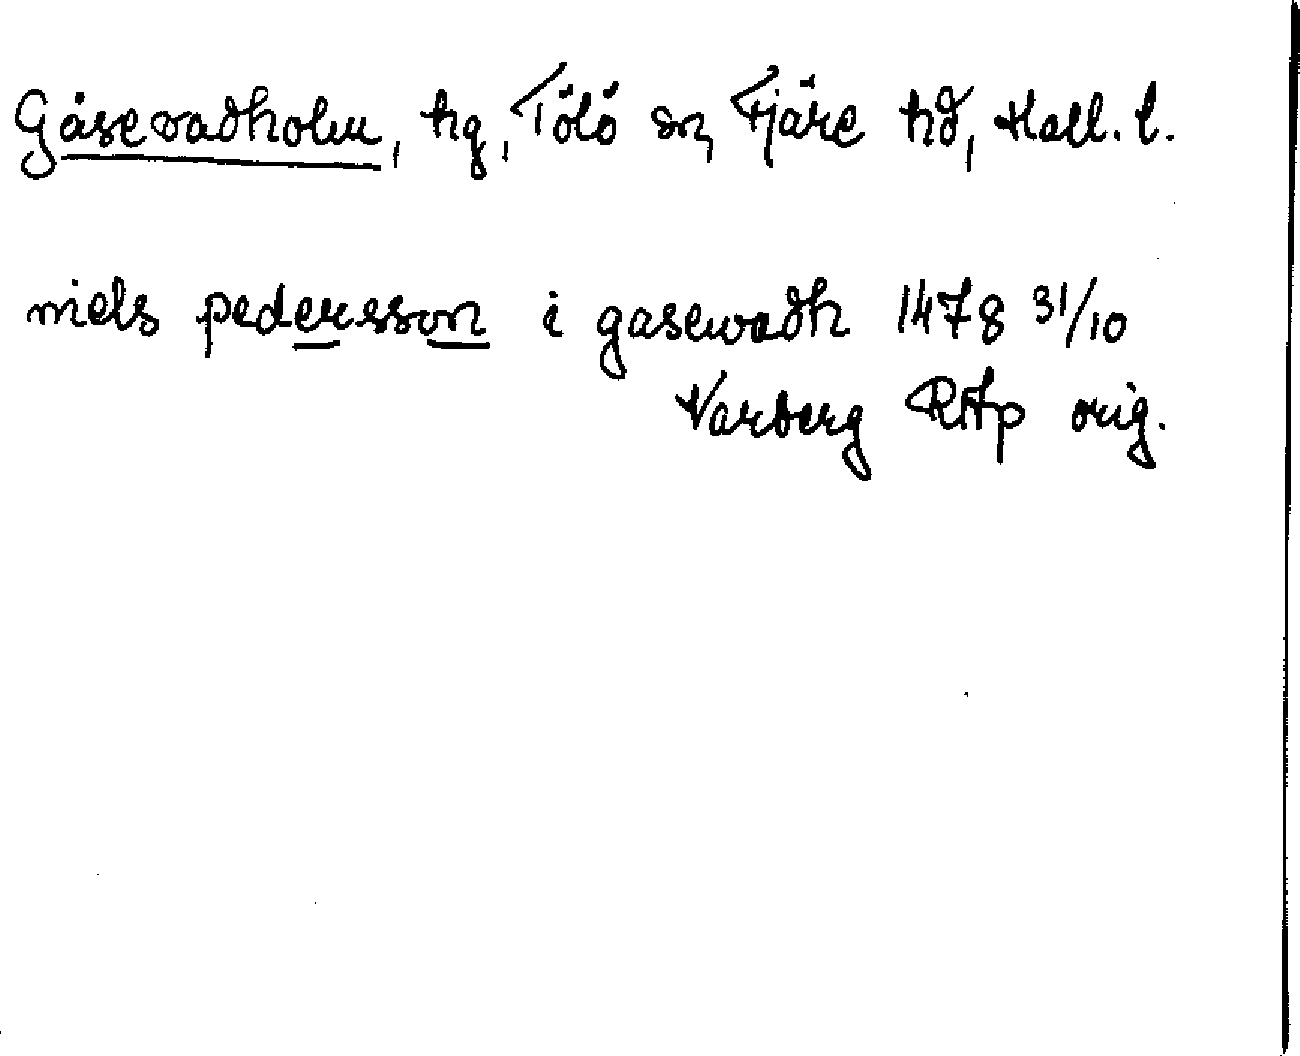 Gåsevadholm, hg, Tölö sn, Fjäre hd, Hall. l.
niels pedersson i gasewadh 1478 31/10
Varberg RAp orig.